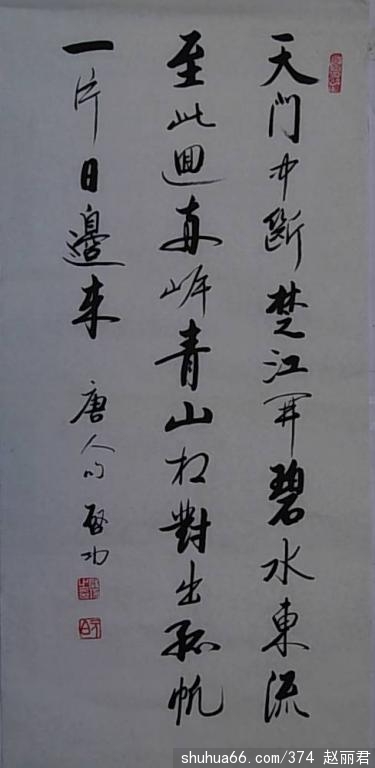 天門中斷楚江開碧水東流
至此迴直岸青山相對出孤帆
一片日邊來
唐人句 啓功
shuhua66.com/374 赵丽君